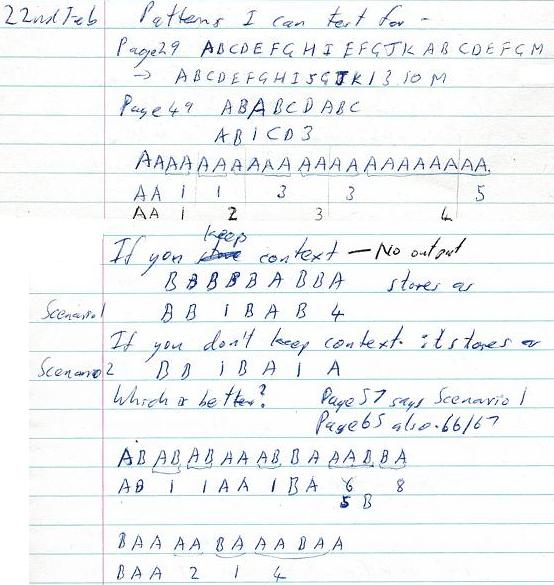 22nd Feb Patterns I can test for -
Page 29 ABCDEFGHI EFGJK AB CDEFGM
→ ABCDEFGHI 5GJK 13 10 M
Page 49 ABABCDABC
AB1CD3
AAAAAAAAA AAAAAAAAAAA
AA 1 1 3 3 5
AA 1 2 3 4
If you keep context - No output
BBBBBABBA stores as
Scenario 1 BB 1BAB 4
If you don't keep context. it stores as
Scenario 2 BB 1BA1A
Which is better? Page 57 says Scenario 1
Page 65 also. 66/67
ABABABAAABBAAABBA
AB 1 1AA 1BA 6 8
5 B
BAA AA BA AABAA
BAA 2 1 4